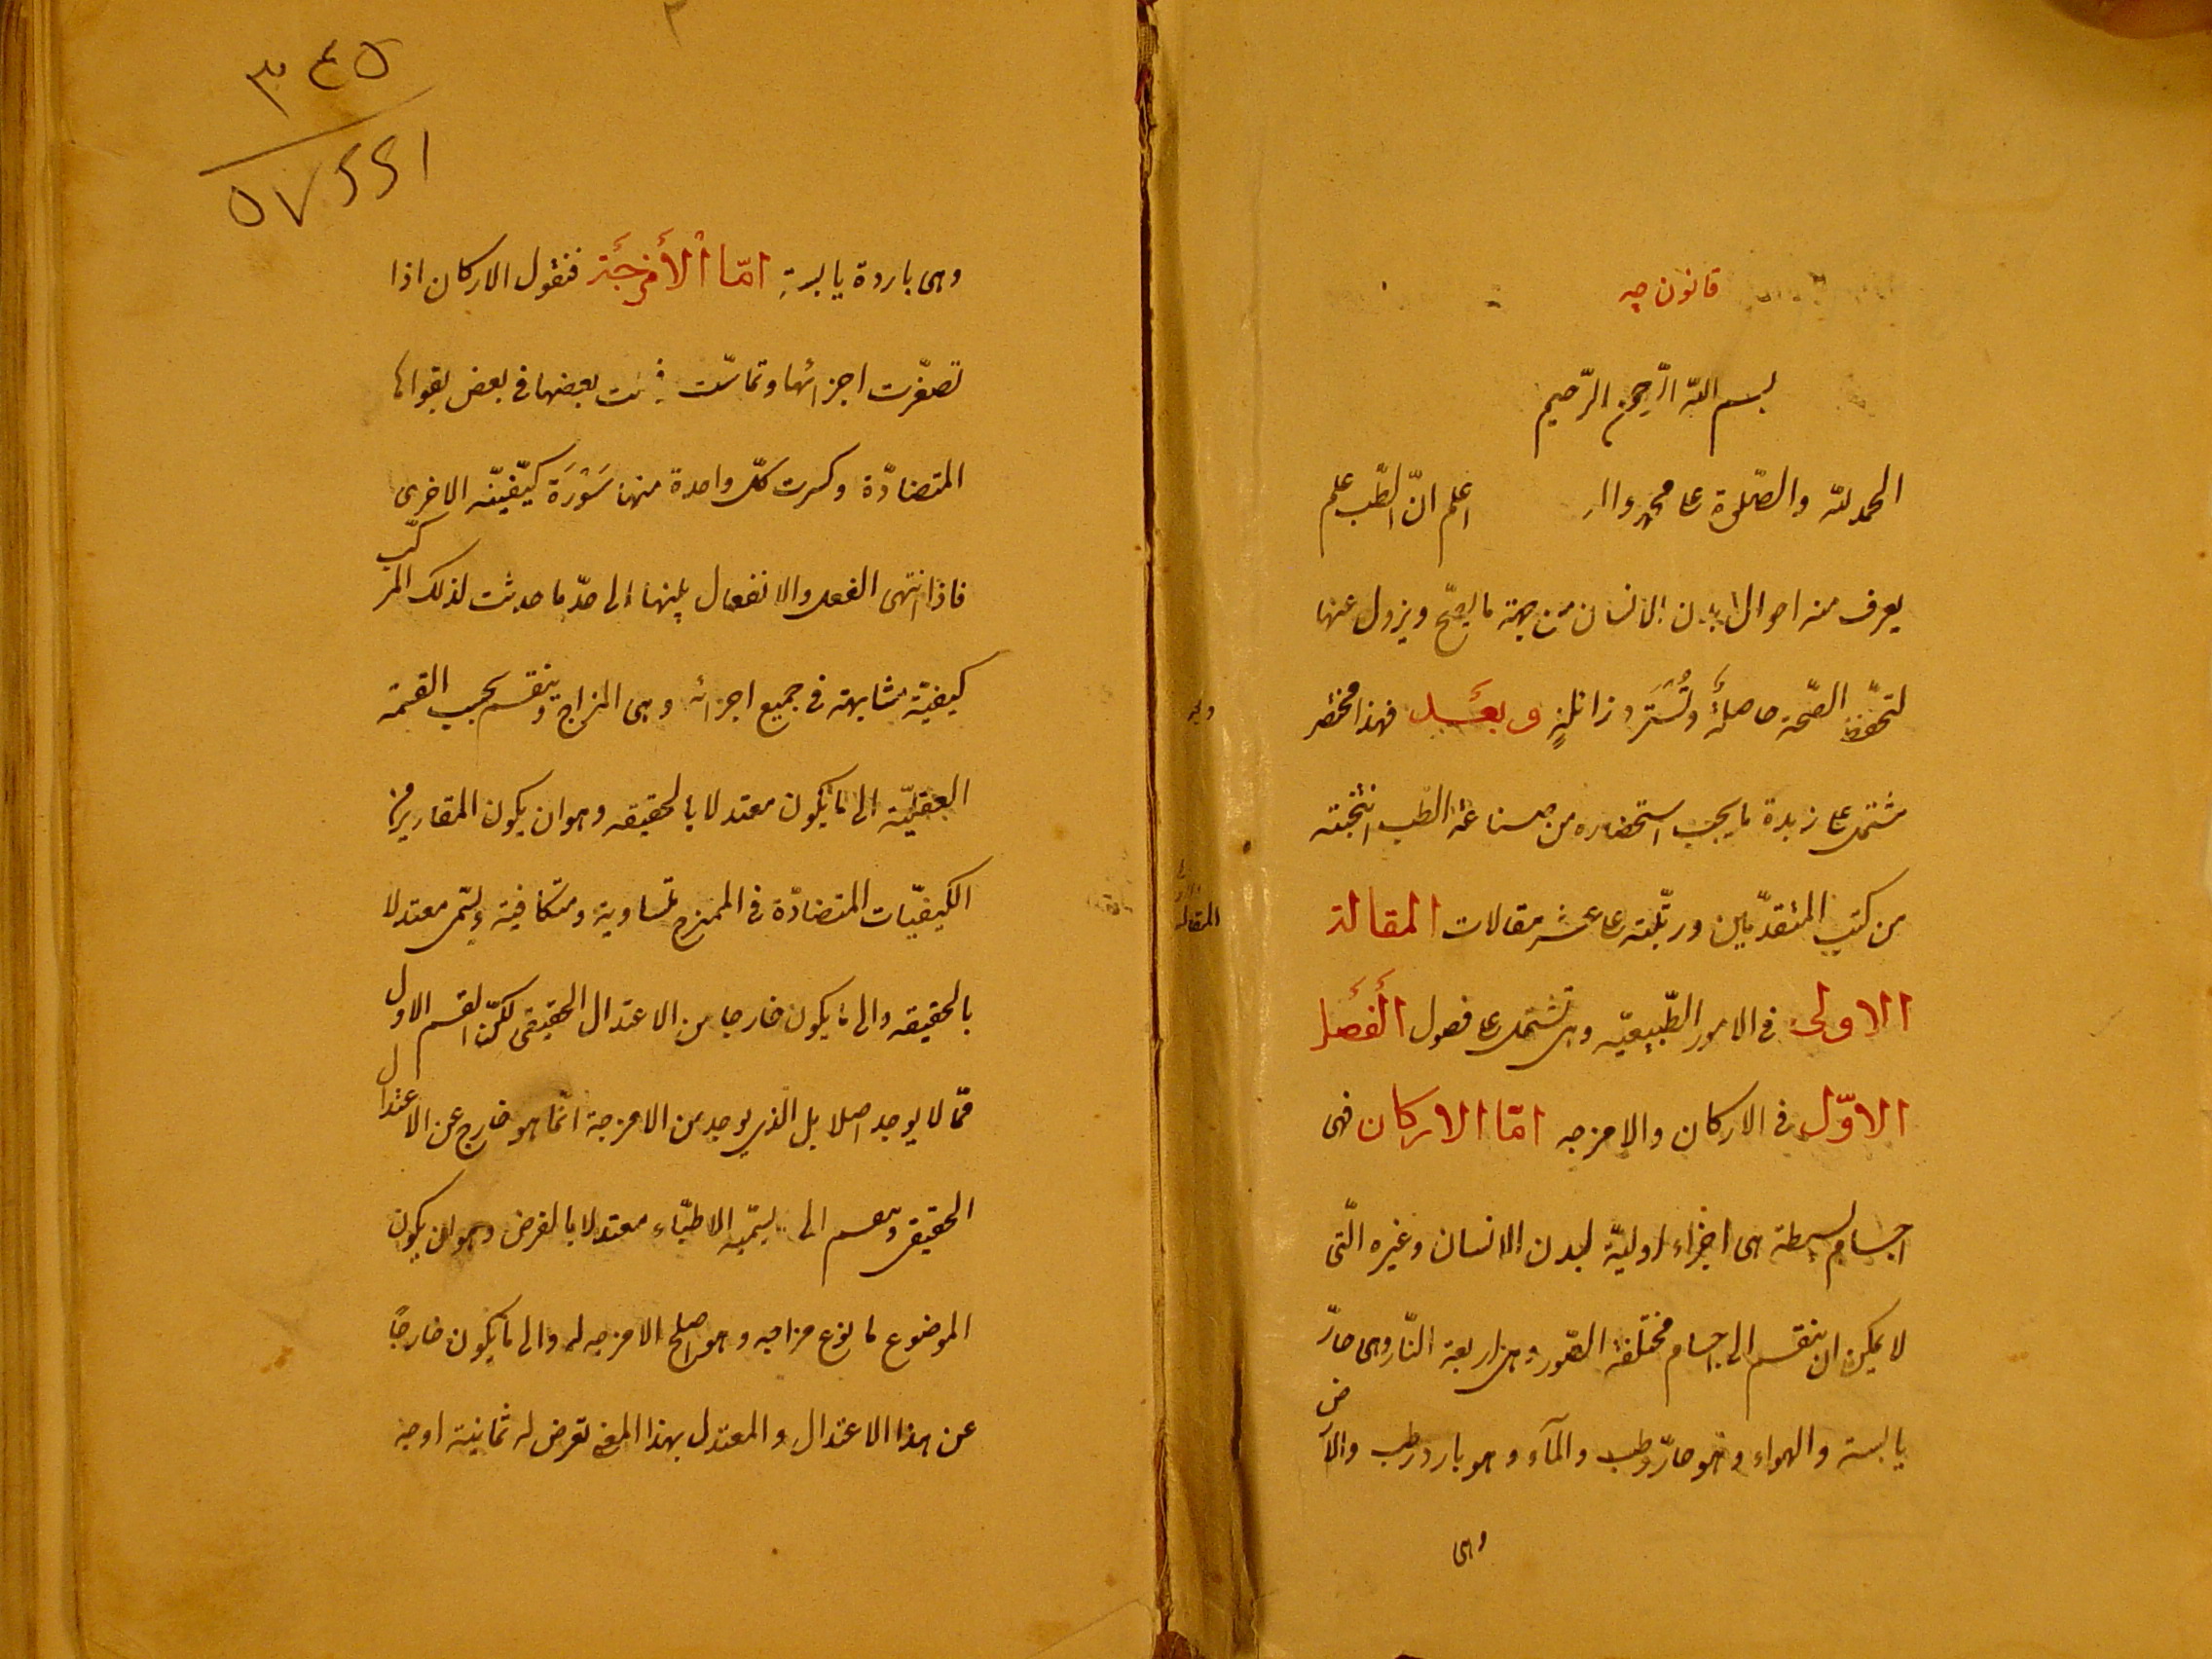 قانون چه
بسم الله الرّحمن الرّحيم
الحمد لله والصّلوة على محمد واله اعلم انّ الطّب علم
يعرف منه احوال بدن الانسان من جهة ما يصحّ ويزول عنها
لتحفظ الصّحة حاصلةً وتُستردّ زائلةٍ وبعد فهذا مختصر
مشتمل على زبدة ما يجب استحضاره من صناعة الطب انتخبته
من كتب المتقدّمين ورتّبته على عشر مقالات المقالة
الاولى فى الامور الطّبيعيّه وهى تشتمل على فصول الفصل
الاوّل فى الاركان والامزجه امّا الاركان فهى
اجسام بسيطة هى اجزاء اوليّة لبدن الانسان وغيره الّتى
لا يمكن ان ينقسم الى اجسام مختلفة الصّور وهى اربعة النّار وهى حارّ
يابسة والهواء وهو حارّ رطب والمآء وهو بارد رطب والارض
وهى
٣٤٥
٥٧٢٢١
وهى باردة يابسةٍ امّا الأمزجَة فنقول الاركان اذا
تصغّرت اجزائها وتماسّت بعضها فى بعض بقواها
المتضادّة وكسرت كلّ واحدة منها سَوْرَة كيفيّة الاخرى
فاذا انتهى الفعل والانفعال بينها الى حدّ ما حدثت لذلك المركّب
كيفيّة متشابهة فى جميع اجزائه وهى المزاج وينقسم بحسب القسمة
العقليّة الى ما يكون معتدلا بالحقيقه وهو ان يكون المقادير من
الكيفيّات المتضادّة فى الممتزج متساوية ومتكافية ويسمّى معتدلا
بالحقيقه والى ما يكون خارجا من الاعتدال الحقيقى لكنّ القسم الاول
ممّا لا يوجد اصلا بل الذى يوجد من الامزجة انّما هو خارج عن الاعتدال
الحقيقى وينقسم الى يسمّيه الاطبّاء معتدلا بالفرض وهو ان يكون
الموضوع مزاجه وهو اصلح الامزجه له والى ما يكون خارجاً
عن هذا الاعتدال والمعتدل بهذا المعنى تعرض له ثمانية اوجه
المقالة